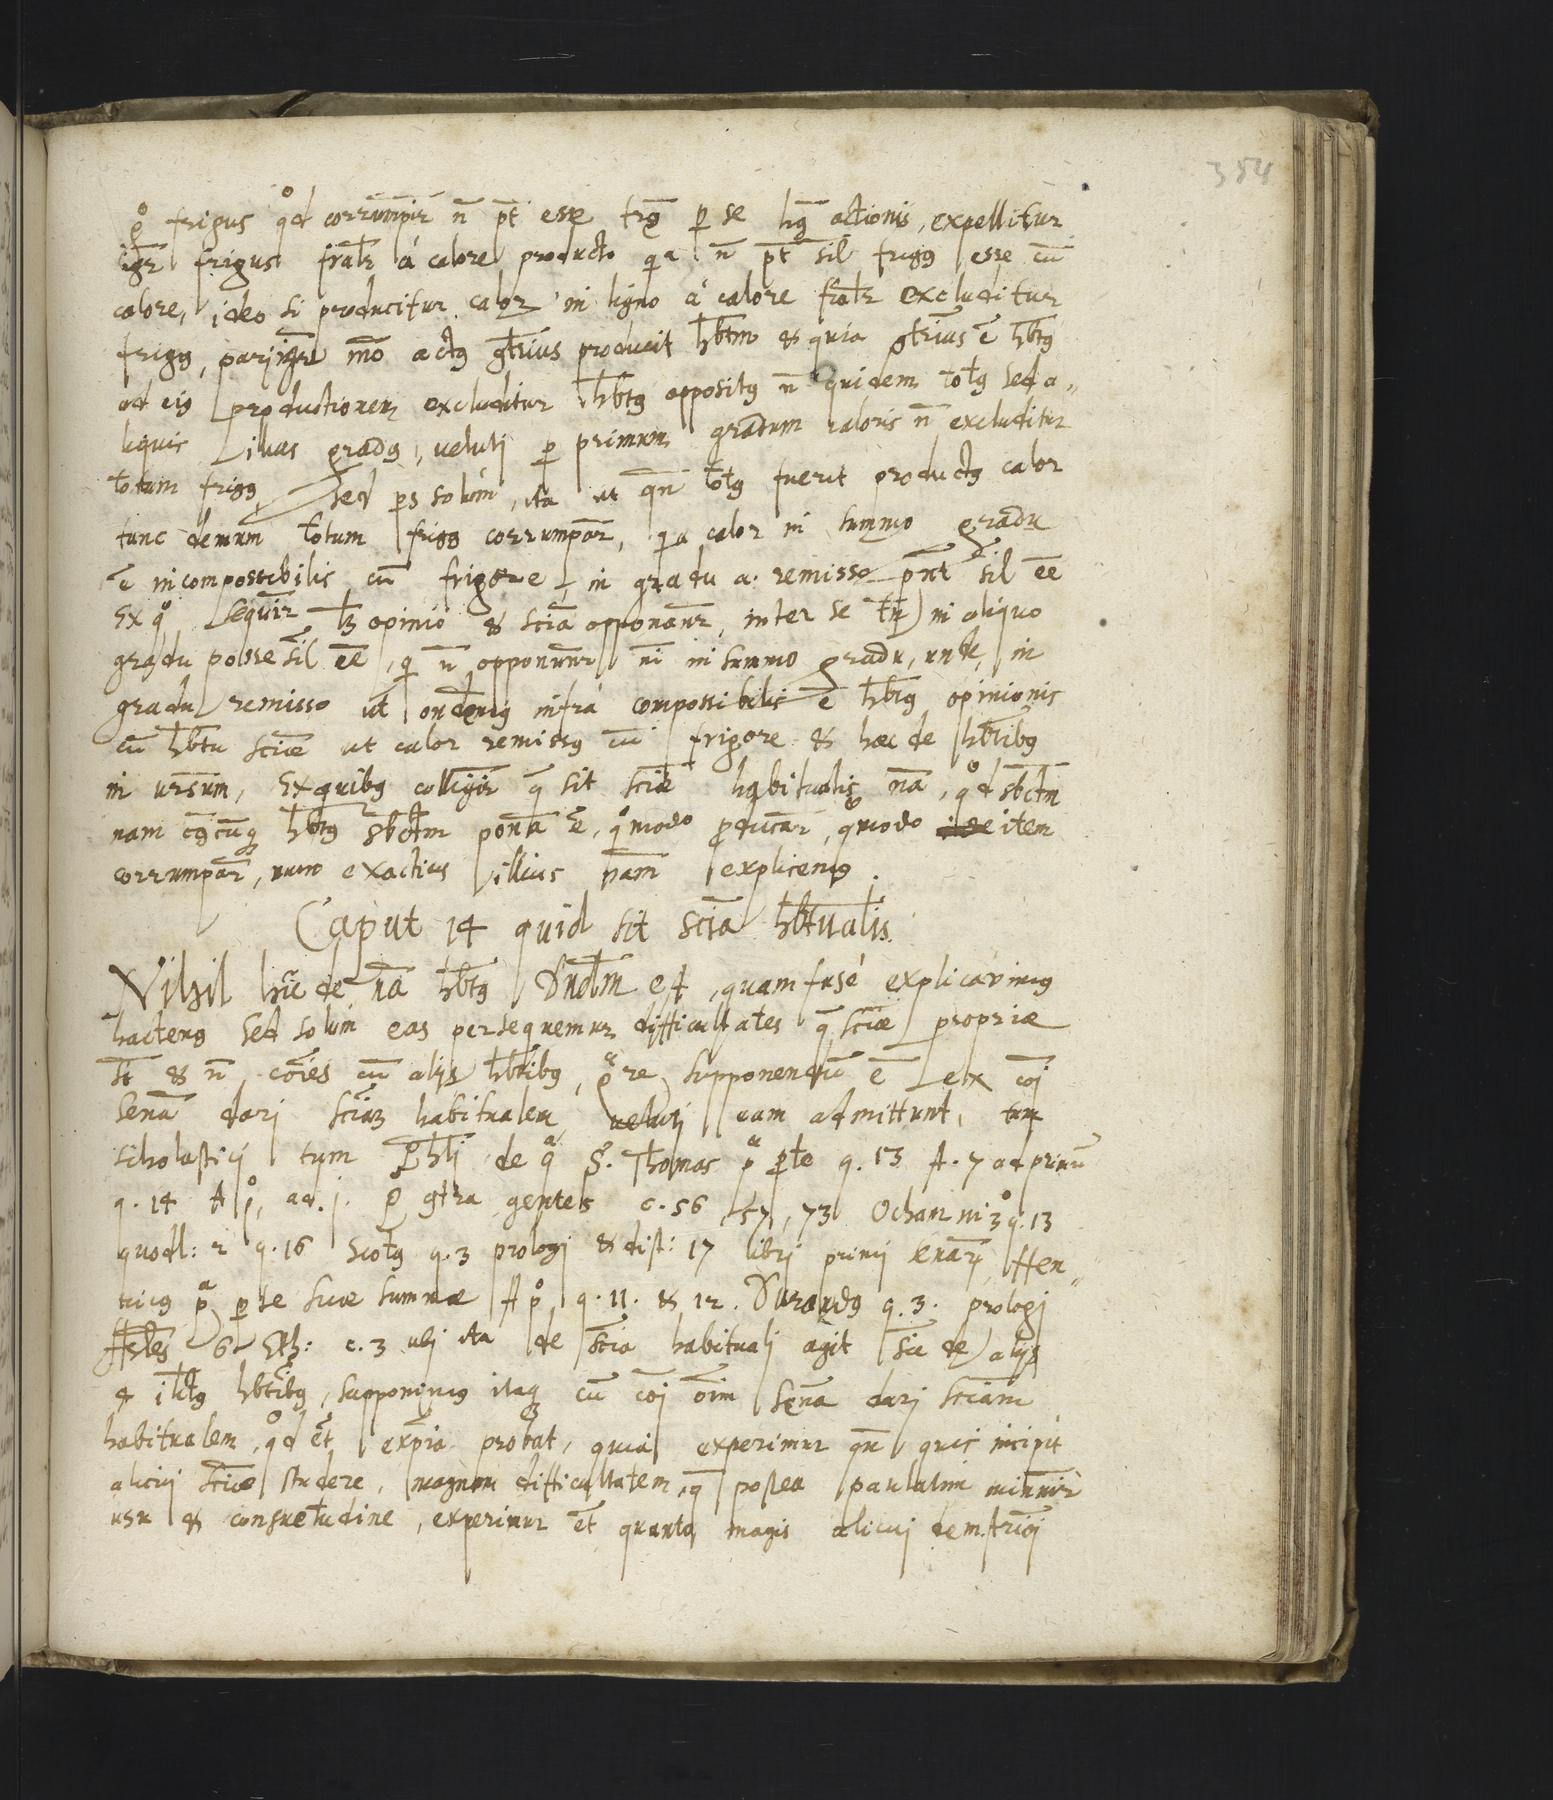 354
g° frigus qod corrumpir̄ n̄ pt̄ esse trḡ p se hḡ actionis, expellitur
igr̄ frigus fralr̄ à calore producto qa n̄ pt̄ sil̄ frigꝯ esse cū
calore, ideo si producitur calor in ligno à calore fralr̄ excluditur
frigꝯ, pari igr̄ mō actꝯ gtrīus producit hbtm̄ & quia gtrīus ē hbtꝯ
ad eiꝯ productionem excluditur hbtꝯ oppositꝯ n̄ quidem totꝯ sed a„
liquis illius gradꝯ, ueluti p primum gradum caloris n̄ excluditur
totum frigꝯ sed ps solùm, ita ut qn̄ totꝯ fuerit productꝯ calor
tunc demum totum frigꝯ corrumpar̄, qa calor in summo gradu
ē incompossibilis cū frigore, in gradu a. remisso pn̄t sil̄ eē
Ex qo sequir̄ lꝫ opinio & scīa opponanr̄ inter se tn̄ in aliquo
gradu posse sil̄ eē, q n̄ opponunr̄ nī in summo gradu, unde in
gradu remisso ut ondemꝯ infrà compossibilis ē hbtꝯ opinionis
cū hbtu scīæ ut calor remissꝯ cū frigore & hæc de hbtibꝯ
in ursum, Ex quibꝯ colligir̄ q̄ sit scīæ habitualis nā, qod sbctm̄
nam cꝯcūqꝫ hbtꝯ sbctm̄ pona ē, qomodo producar̄, qomodo item
corrumpar̄, nunc exactius illius nām explicemꝯ.
Caput 14 quid sit scīa hbtualis
Nihil hīc de nā hbtꝯ Dndm̄ est, quam fusè explicavimꝯ
hactenꝯ sed solum eas persequemur difficultates q̄ scīæ propriæ
st̄ & n̄ cōies cū alijs hbtibꝯ, qare supponendū ē ex cōi
senā dari scīaꝫ habitualem ueluti eam admittunt, tum
scholastici tum Phl̄i de qa S. Thomas pa pte q. 13 A. 7 ad primū
q. 14 A po, ad. j. p° gtra gentes c. 56, 57, 73 Ocham in 3o q. 13
quodl: 2 q. 16 Scotꝯ q. 3 prologi & dist: 17 libri primi senar̄, Hen„
ricꝯ pa pte suæ summæ A po q. 11. & 12. Durandꝯ q. 3. prologi
Arles 6 Eth: c. 3 ubi ita de scīa habituali agit sic de alijs
hbtibꝯ, supponimꝯ itaqꝫ cū cōi oīm senā dari scīam
habitualem, qod et̄ expīa probat, quia experimur qn̄ quis incipit
alicui scīæ studere, magnam difficultatem, q̄ postea paulatim minuir̄
usu & consuetudine, experimur et̄ quanto magis alicui demstrīoi